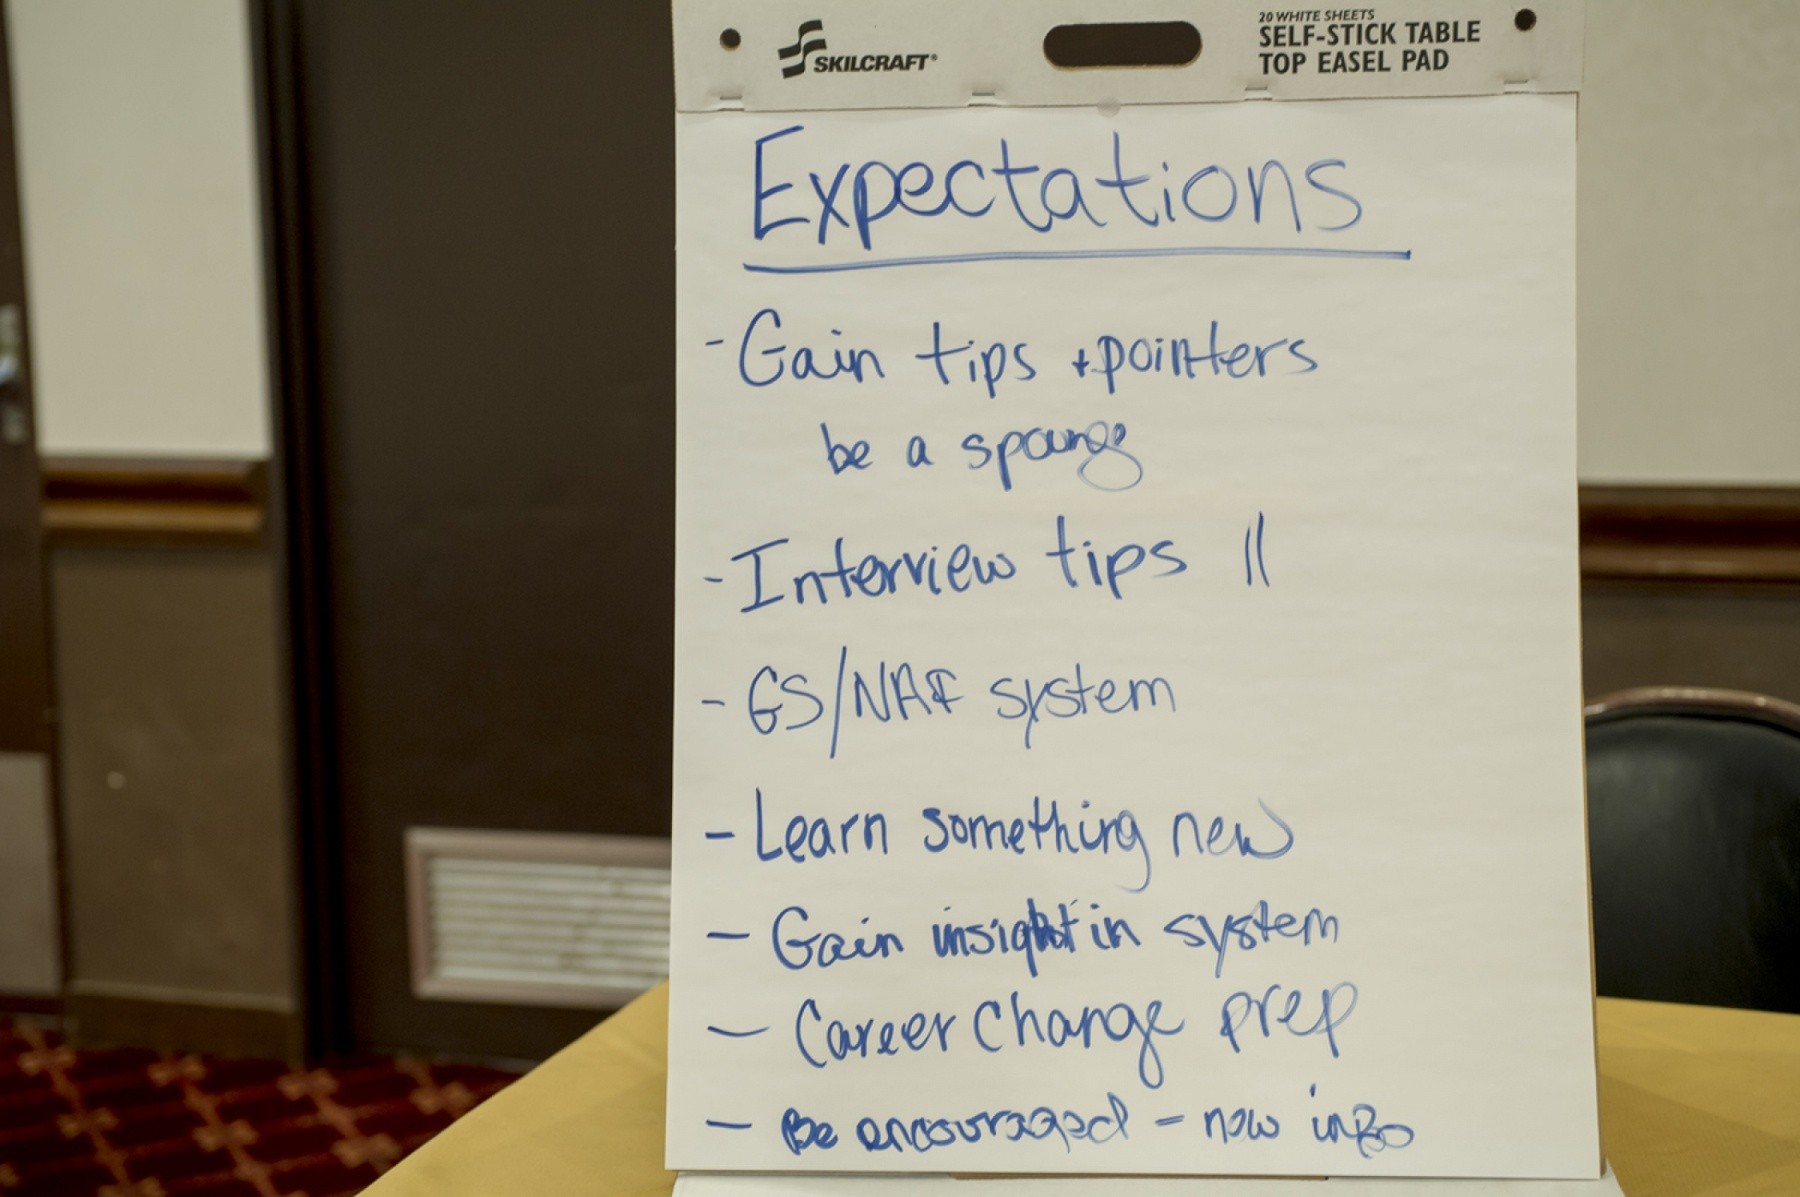 SKILCRAFT®
20 WHITE SHEETS
SELF-STICK TABLE
TOP EASEL PAD
Expectations
- Gain tips + pointers
be a spounge
- Interview tips ||
- GS/NAF system
- Learn something new
- Gain insight in system
- Career Change prep
- Be encouraged - now info